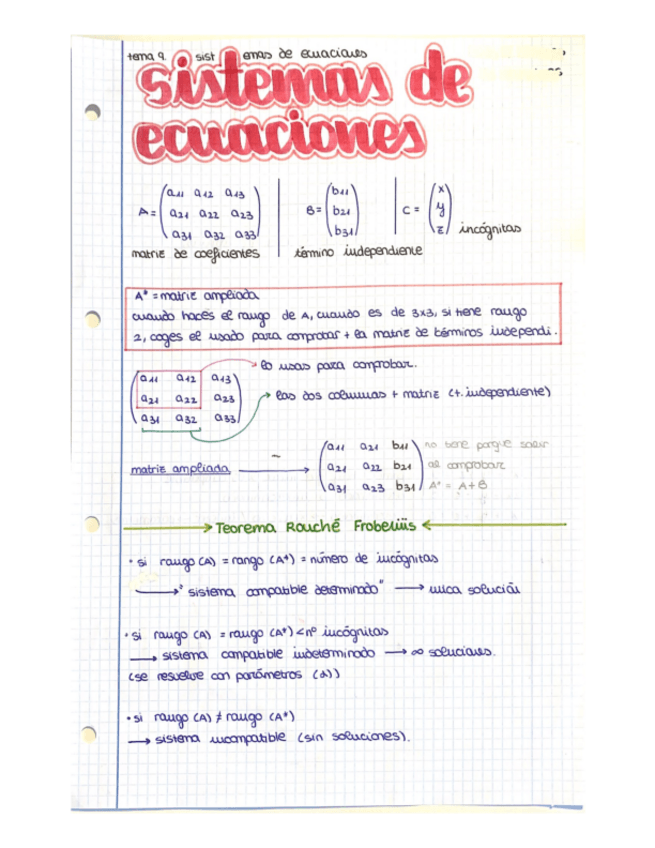 tema 9. sistemas de ecuaciones
sistemas de
ecuaciones
A = (a11 a12 a13
a21 a22 a23
a31 a32 a33)
B = (b11
b21
b31)
C = (x
y
z) incógnitas
matriz de coeficientes
término independiente
A* = matriz ampliada
cuando haces el rango de A, cuando es de 3x3, si tiene rango
2, coges el usado para comprobar + la matriz de términos independi.
lo usas para comprobar.
(a11 a12 a13
a21 a22 a23
a31 a32 a33)
las dos columnas + matriz (t. independiente)
matriz ampliada
(a11 a21 b11
a21 a22 b21
a31 a23 b31)
no tiene porque salir
al comprobar
A* = A+B
Teorema Rouché Frobeniüs
• si rango (A) = rango (A*) = número de incógnitas
→ "sistema compatible determinado" → unica solución
• si rango (A) = rango (A*) < nº incógnitas
→ sistema compatible indeterminado → ∞ soluciones.
(se resuelve con parámetros (λ))
• si rango (A) ≠ rango (A*)
→ sistema incompatible (sin soluciones).